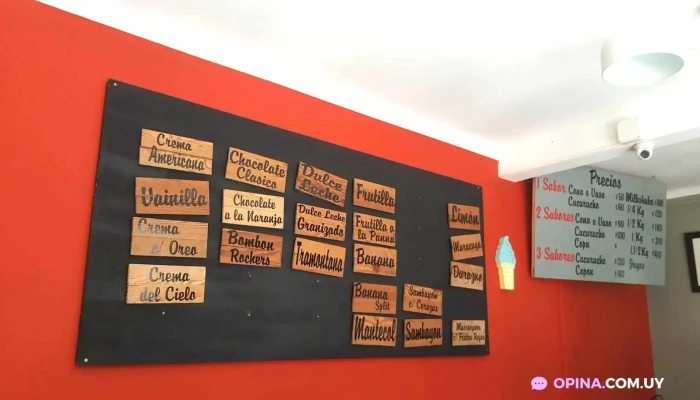 Crema
Americana
Vainilla
Crema
c/ Oreo
Crema
del Cielo
Chocolate
Clasico
Chocolate
a la Naranja
Bombon
Rockers
Dulce
Leche
Dulce Leche
Granizado
Tramontana
Frutilla
Frutilla a
la Panna
Banana
Banana
Split
Mantecol
Sambayon
c/ Cerezas
Sambayon
Limon
Maracuya
Durazno
Mascarpone
c/ Frutos Rojos
Precios
1 Sabor Cono o Vaso $50
Cucurucho $60
2 Sabores Cono o Vaso $90
Cucurucho $100
Copa
3 Sabores Cucurucho
Copon
Milkshake $100
1/4 Kg
1/2 Kg
1 Kg
1 1/2 Kg
Jugos
OPINA.COM.UY